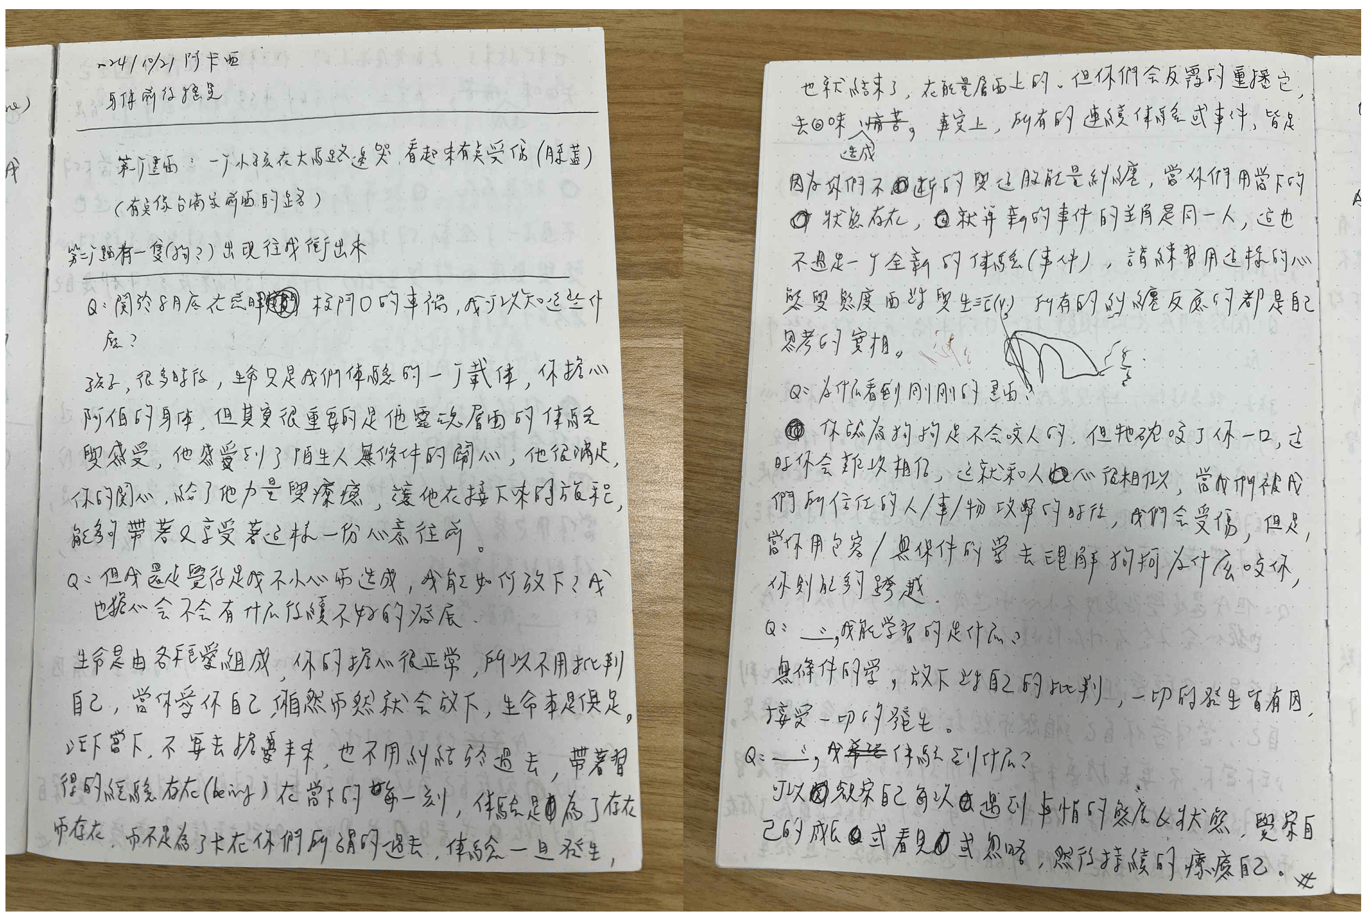 2024/10/21 阿卡西
身体前後擺晃
第1个畫面：一个小孩在大馬路邊哭，看起來有受傷(膝蓋)
(有点像台南家前面的路)
第二个題有一隻(狗？)出現往我衝出來
Q：關於8月底在 校門口的事福，我可以知道些什
麼？
孩子，很多時後，生命只是我們体驗的一个載体，你擔心
阿伯的身体，但其實很重要的是他靈魂層面的体驗
與感受，他感受到了陌生人無條件的關心，他很滿足，
你的關心，給了他力量與療癒，讓他在接下來的旅程，
能夠帶著又享受著這樣一份心意往前。
Q：但我還是覺得是我不小心而造成，我能如何放下？我
也擔心会不会有什么後續不好的發展.
生命是由各種愛組成，你的擔心很正常，所以不用批判
自己，當你愛你自己，自然而然就会放下，生命本是俱足。
活在當下，不要去擔憂未來，也不用糾結於過去，帶著習
得的經驗存在(being)在當下的每一刻，体驗是為了存在
而存在 而不是為了卡在你們所謂的過去，体驗一旦發生，
也就結束了，在能量層面上的。但你們会反覆的重播它，
去回味痛苦。事実上，所有的連續体驗式事件，皆是
造成
因為你們不斷的與這股能量糾纏，當你們用當下的
狀態存在，就算新的事件的主角是同一人，這也
不過是一个全新的体驗(事件)。請練習用這樣的心
態與態度面對與生活 所有的糾纏反應的都是自己
思考的實相。
Q：為什么看到剛剛的畫面？
你認為狗狗是不会咬人的，但牠確咬了你一口，這
時你会難以相信，這就和人心很相似，當我們被我
們所信任的人/事/物攻擊的時後，我們会受傷，但是，
當你用包容/無條件的愛去理解狗狗為什么咬你，
你則能夠跨越.
Q：〃，我能學習的是什么？
無條件的愛，放下對自己的批判，一切的發生皆有因，
接受一切的發生。
Q：〃，我体驗到什么？
可以觀察自己每次遇到事情的態度&狀態，觀察自
己的成長或看見或忽略，然後持續的療癒自己。